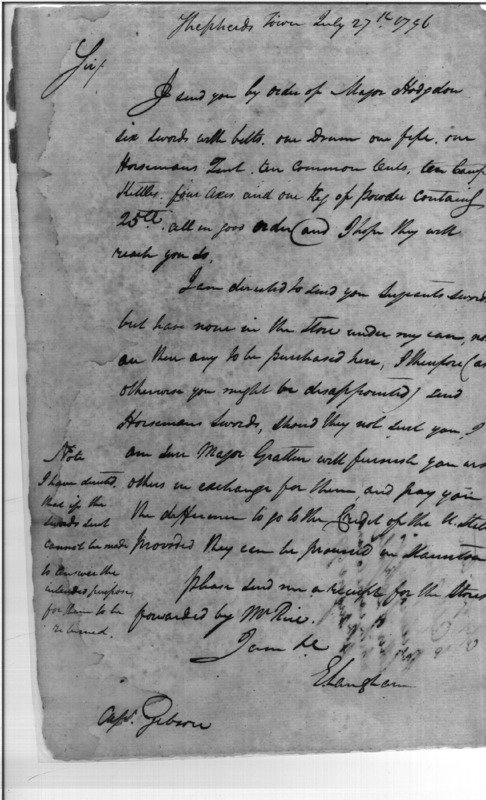 Shepherds Town July 27th 1796
Sir/.
I send you by order of Major Hodgdon
six swords with belts. one Drum one fife, one
Horsemans Tent. ten Common tents, ten Camp
Kettles. five Axes and one Keg of Powder containg
25 all in good order (and I hope they will
reach you so.
I am directed to send you Serjeants Swords
but have none in the store under my care, nor
are there any to be purchased here, I therefore (as
otherwise you might be disappointed) send
Horsemans Swords, should they not suit you, I
am sure Major Grattan will furnish you
others in exchange for them, and pay you
the difference to go to the Credit of the U. States
provided they can be procured in Staunton
please send me a receipt for the Stores
forwarded by Mr Rice.
I am &c
E Langham
Capt. Gibson
Note
I have directed
that if the
swords sent
cannot be made
to answer the
intended purpose,
for them to be
returned.